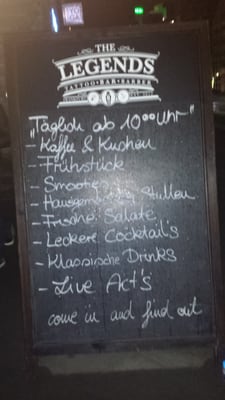 THE
LEGENDS
TATTOO • BAR • BARBER
"Täglich ab 10⁰⁰ Uhr"
- Kaffee & Kuchen
- Frühstück
- Smoothies
- Hausgemachte Stullen
- Frische Salate
- Leckere Cocktail's
- Klassische Drinks
- Live Act's
come in and find out